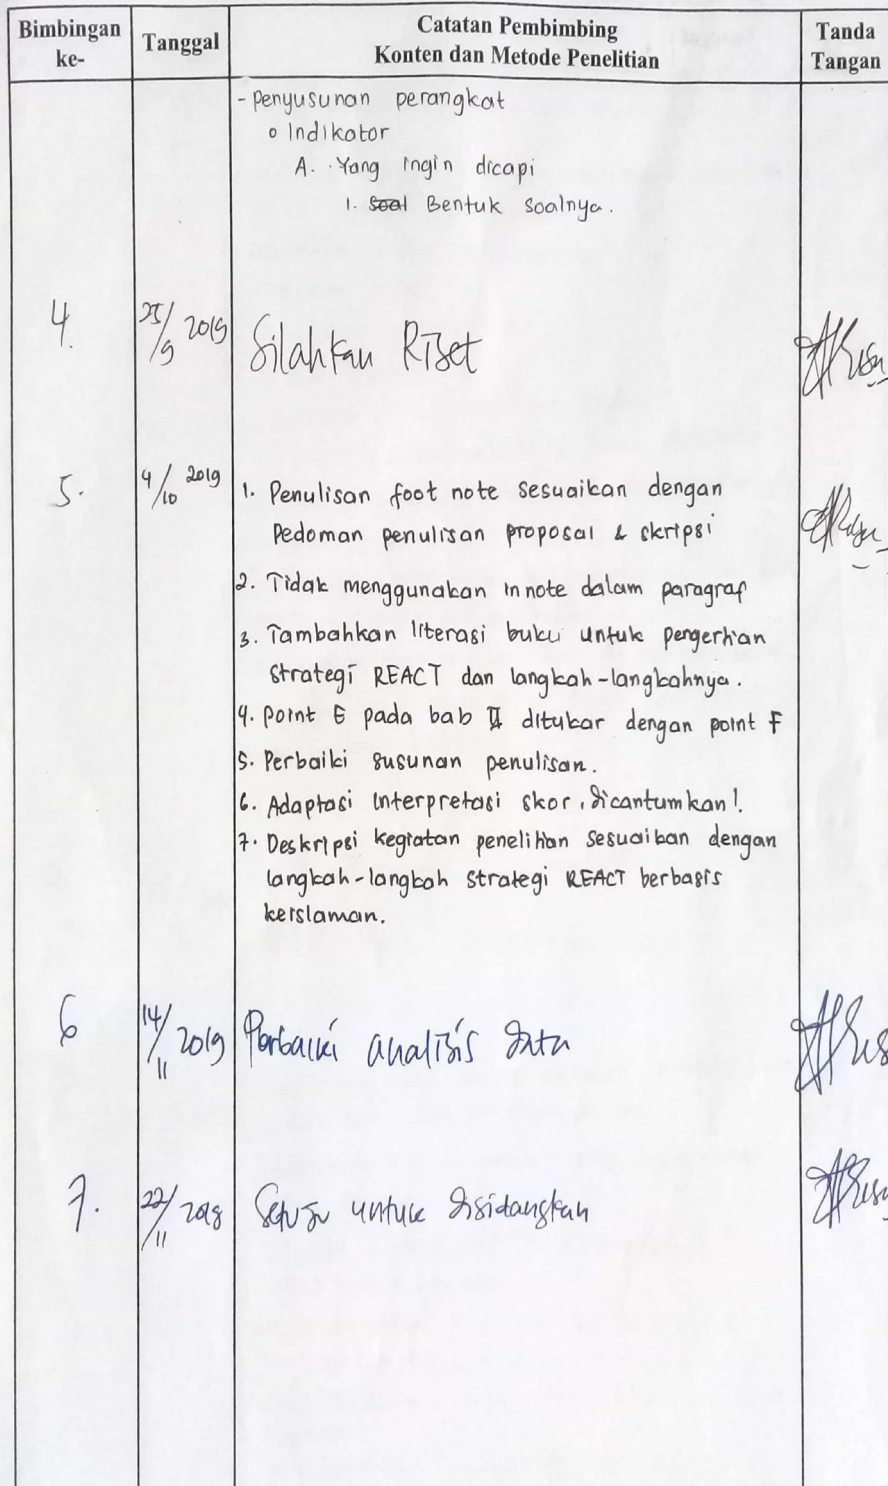 Bimbingan ke-
Tanggal
Catatan Pembimbing
Konten dan Metode Penelitian
Tanda Tangan
- Penyusunan perangkat
o Indikator
A. Yang ingin dicapi
1. Soal Bentuk soalnya.
4. 25/9 2019 Silahkan Riset
5. 4/10 2019
1. Penulisan foot note sesuaikan dengan
Pedoman penulisan proposal & skripsi
2. Tidak menggunakan in note dalam paragraf
3. Tambahkan literasi buku untuk pengertian
Strategi REACT dan langkah-langkahnya.
4. point E pada bab II ditukar dengan point F
5. Perbaiki susunan penulisan.
6. Adaptasi interpretasi skor, dicantumkan!
7. Deskripsi kegiatan penelitian sesuaikan dengan
langkah-langkah strategi REACT berbasis
keislaman.
6 14/11 2019 Perbaiki analisis data
7. 22/11 Setuju untuk disidangkan